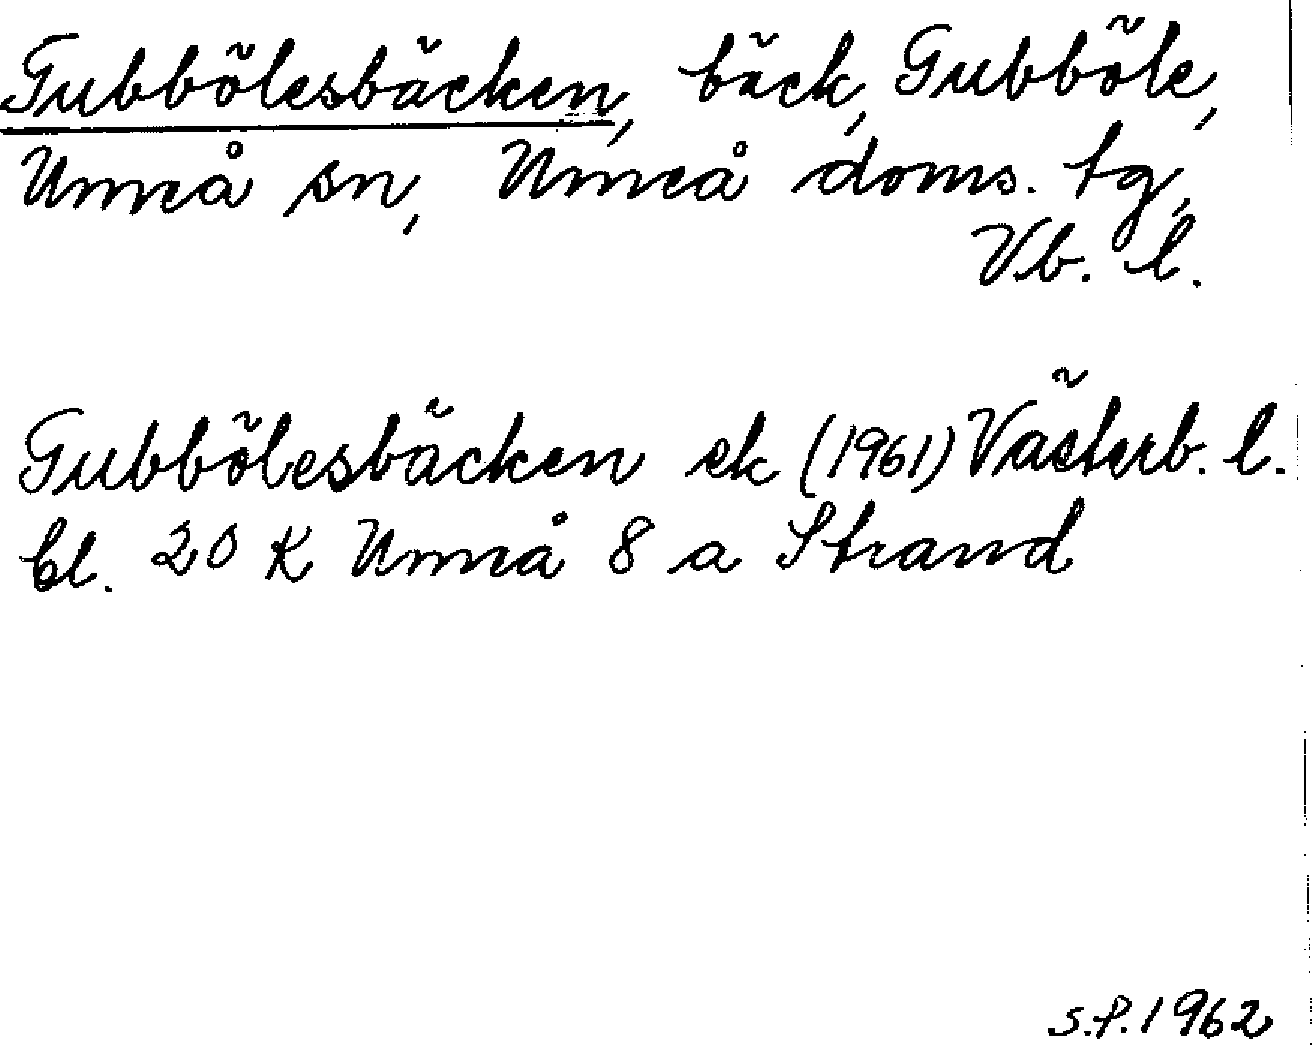 Gubbölesbäcken, bäck, Gubböle,
Umeå sn, Umeå doms. tg,
Vb. l.
Gubbölesbäcken ek (1961) Västerb. l.
bl. 20 K Umeå 8 a Strand
S.P. 1962